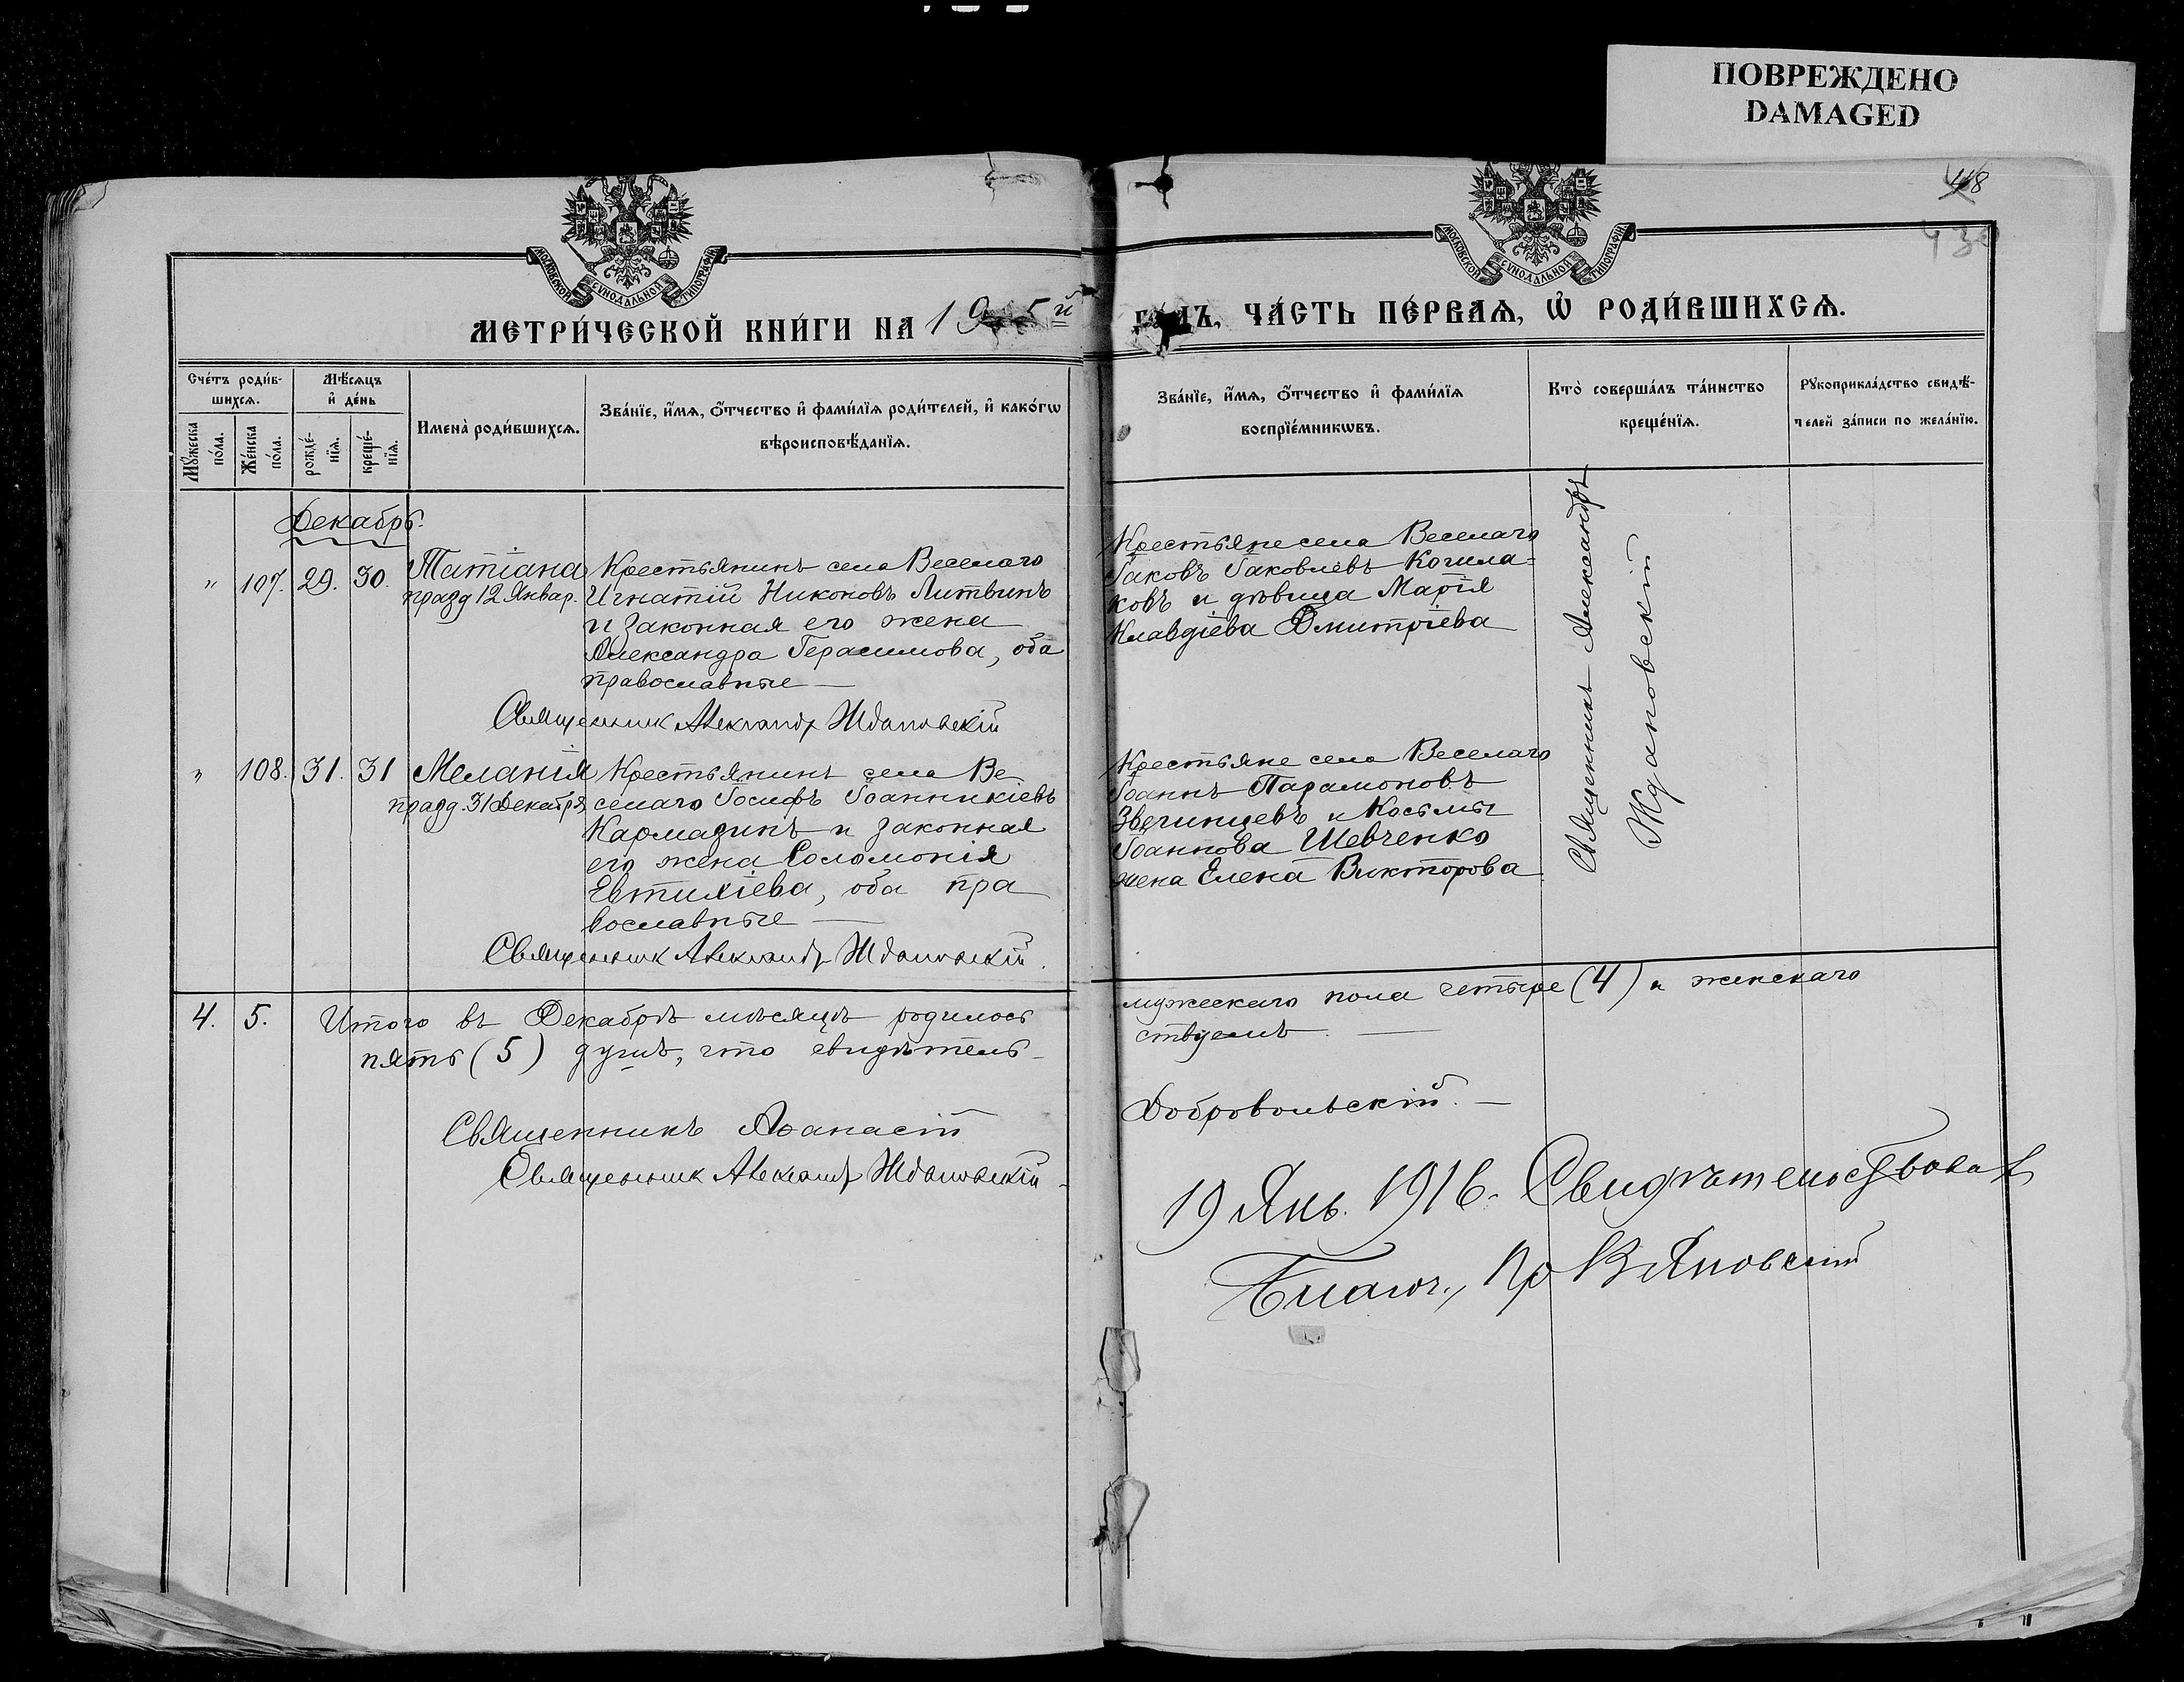 ПОВРЕЖДЕНО
DAMAGED
48
43
МОСКОВСКОЙ СѴНОДАЛЬНОЙ ТИПОГРАФІИ
МОСКОВСКОЙ СѴНОДАЛЬНОЙ ТИПОГРАФІИ
МЕТРИ́ЧЕСКОЙ КНИ́ГИ НА 1915й ГОДЪ, ЧА́СТЬ ПЕ́РВАѦ, Ѡ҆ РОДИ́ВШИХСѦ.
Сче́тъ роди́в-
шихсѧ.
Мꙋ́жеска
по́ла.
Же́нска
по́ла.
Мѣ́сѧцъ
и҆ де́нь
рожде́-
нїѧ.
креще́-
нїѧ.
Имена̀ роди́вшихсѧ.
Зва́нїе, и҆́мѧ, ѻ҆́тчество и҆ фами́лїѧ роди́телей, и҆ како́гѡ
вѣроисповѣ́данїѧ.
Зва́нїе, и҆́мѧ, ѻ҆́тчество и҆ фами́лїѧ
воспрїе́мникѡвъ.
Кто̀ соверша́лъ та́инство
креще́нїѧ.
Рꙋкоприкла́дство свидѣ́-
телей за́писи по жела́нїю.
Декабрь.
" 107. 29. 30.
Татіана
празд 12 Январ.
Крестьянинъ села Веселаго
Игнатій Никоновъ Литвинъ
и законная его жена
Александра Герасимова, оба
православные —
Священник Александр Ждановскій
Крестьяне села Веселаго
Іаковъ Іаковлевъ Кочила-
ковъ и дѣвица Марія
Клавдіева Дмитріева
Священникъ Александръ
Ждановскій
" 108. 31. 31
Меланія
празд. 31 Декабря
Крестьянинъ села Ве
селаго Іосифъ Іоанникіевъ
Кармазинъ и законная
его жена Соломонія
Евтихіева, оба пра
вославные —
Священник Александр Ждановскій.
Крестьяне села Веселаго
Іоаннъ Парамоновъ
Звегинцевъ и Косьмы
Іоаннова Шевченко
жена Елена Викторова
4. 5. Итого въ Декабрѣ мѣсяцѣ родилось мужескаго пола четыре (4) и женскаго
пять (5) душъ, что свидѣтель- ствуемъ. —
Священникъ Аѳанасій Добровольскій. —
Священник Александр Ждановскій.
19 Янв. 1916. Свидѣтельствовалъ
Благоч., Пр В Яновскій